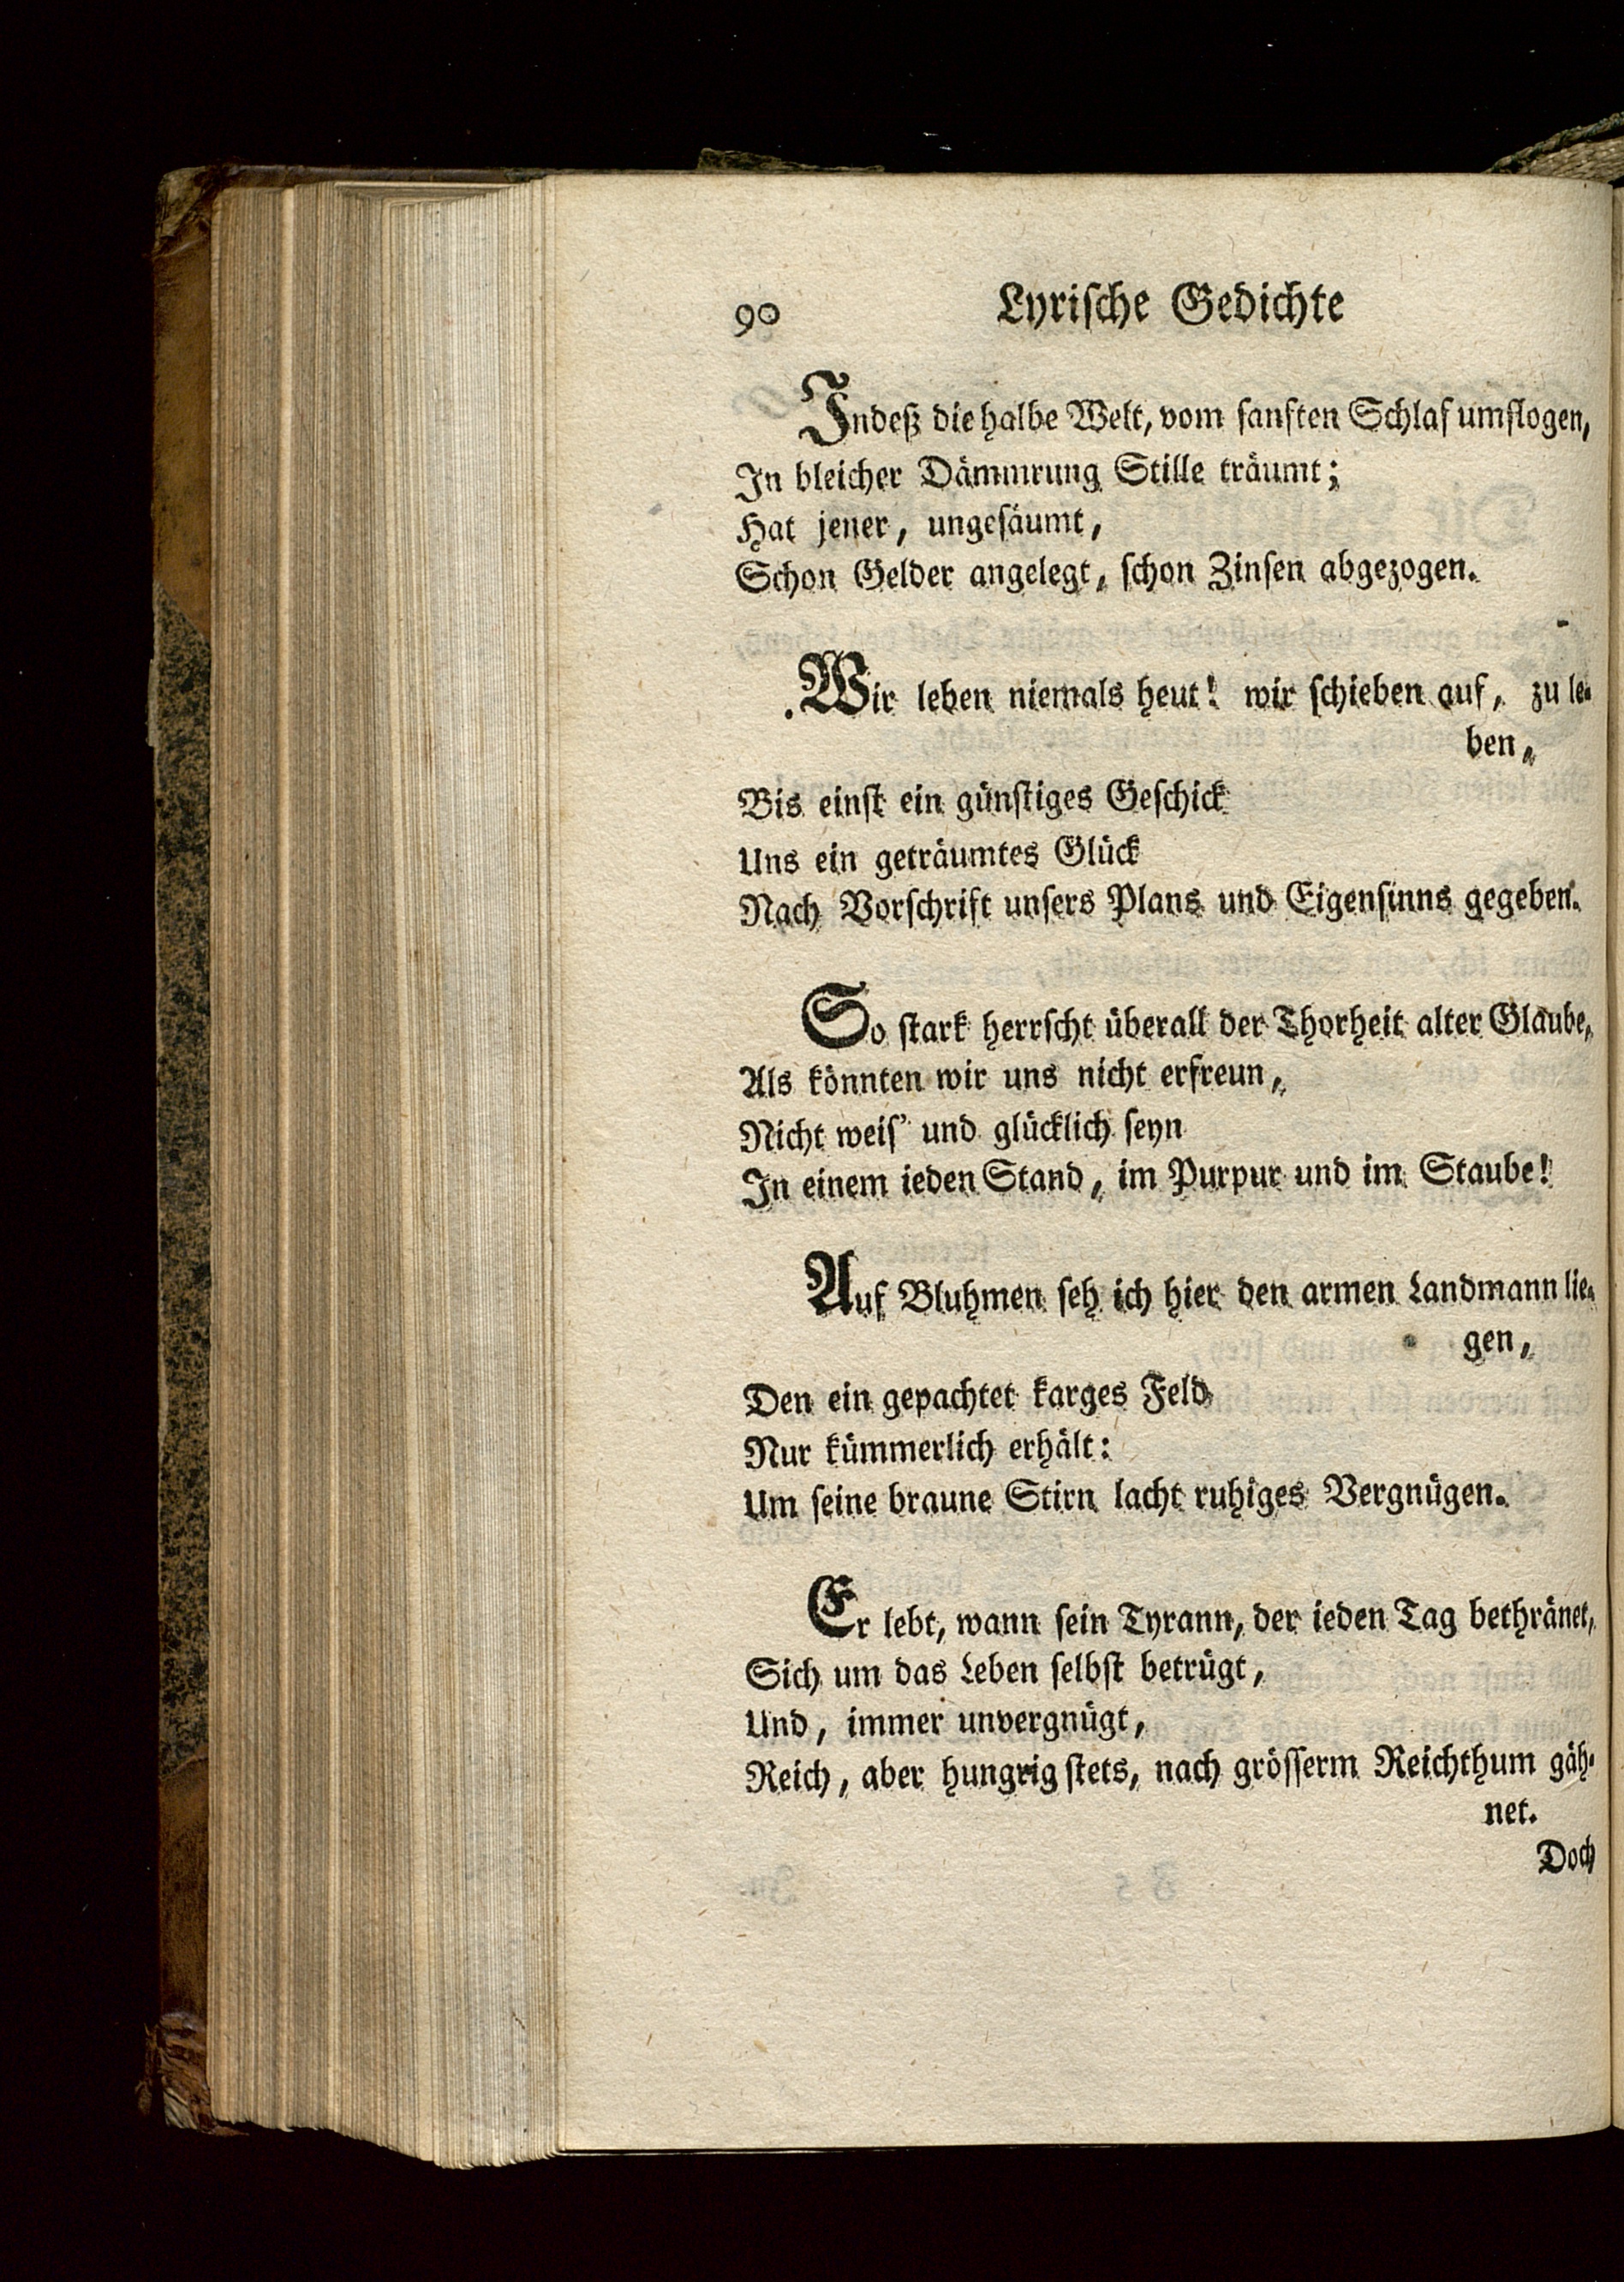 90 Lyrische Gedichte
Indeß die halbe Welt, vom sanften Schlaf umflogen,
In bleicher Dämmrung Stille träumt;
Hat jener, ungesäumt,
Schon Gelder angelegt, schon Zinsen abgezogen.
Wir leben niemals heut! wir schieben auf, zu le-
ben,
Bis einst ein günstiges Geschick
Uns ein geträumtes Glück
Nach Vorschrift unsers Plans und Eigensinns gegeben.
So stark herrscht überall der Thorheit alter Glaube,
Als könnten wir uns nicht erfreun,
Nicht weis' und glücklich seyn
In einem ieden Stand, im Purpur und im Staube!
Auf Bluhmen seh ich hier den armen Landmann lie-
gen,
Den ein gepachtet karges Feld
Nur kümmerlich erhält:
Um seine braune Stirn lacht ruhiges Vergnügen.
Er lebt, wann sein Tyrann, der ieden Tag bethränet,
Sich um das Leben selbst betrügt,
Und, immer unvergnügt,
Reich, aber hungrig stets, nach grösserm Reichthum gäh-
net.
Doch